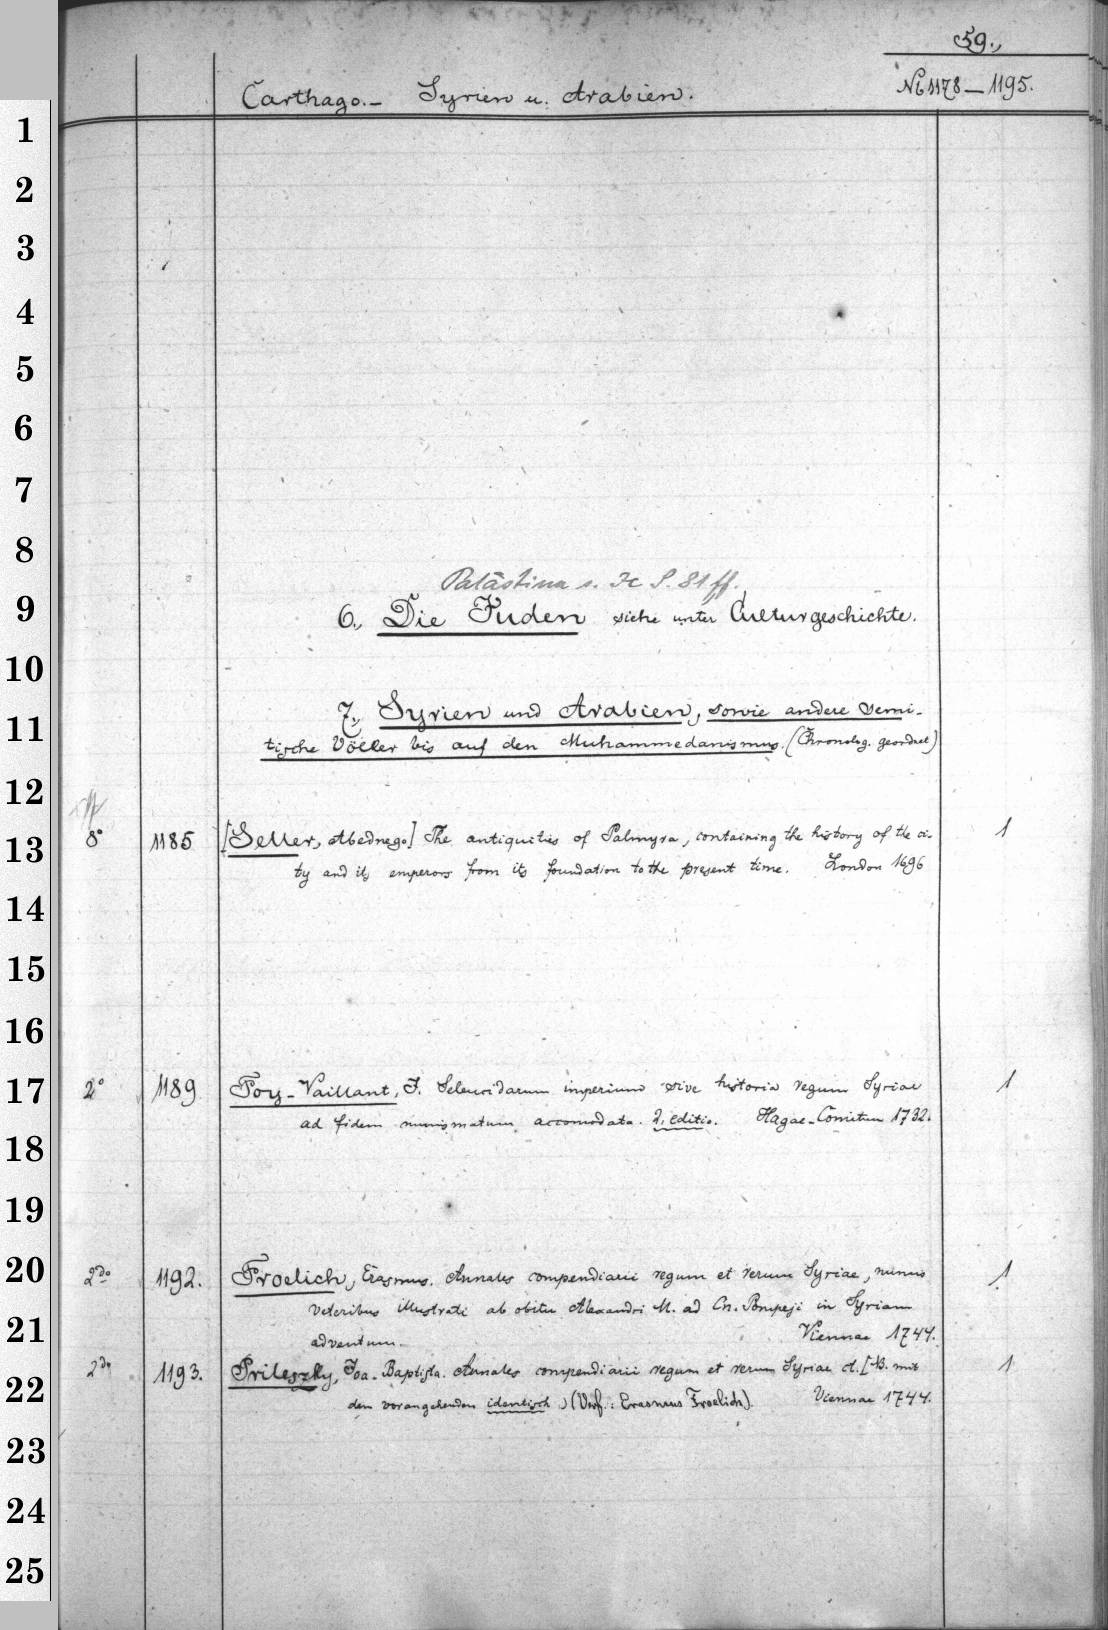 59.,
Carthago.- Syrien u. Arabien. No 1178-1195.
1
2
3
4
5
6
7
8
Palästina s. Jc S. 81 ff.
9
6., Die Juden siehe unter Culturgeschichte.
10
7., Syrien und Arabien, sowie andere semi-
11
tische Völker bis auf den Muhammedanismus. (Chronolog. geordnet)
12
13
8° 1185 [Seller, Abednego] The antiquities of Palmyra, containing the history of the ci- 1
ty and its emperors from its foundation to the present time. London 1696
14
15
16
17
2° 1189 Foy-Vaillant, J. Seleucidarum imperium sive historia regum Syriae 1
ad fidem numismatum accomodata. 2. editio. Hagae-Comitum 1732.
18
19
20
2do 1192. Froelich, Erasmus. Annales compendiarii regum et rerum Syriae, numis 1
veteribus illustrati ab obitu Alexandri M. ad Cn. Pompeji in Syriam
21
adventum. Viennae 1744.
2do 1193. Prileszky, Joa. Baptista. Annales compendiarii regum et rerum Syriae ct. [NB. mit 1
22
dem vorangehenden identisch.) (Verf.: Erasmus Froelich). Viennae 1744.
23
24
25